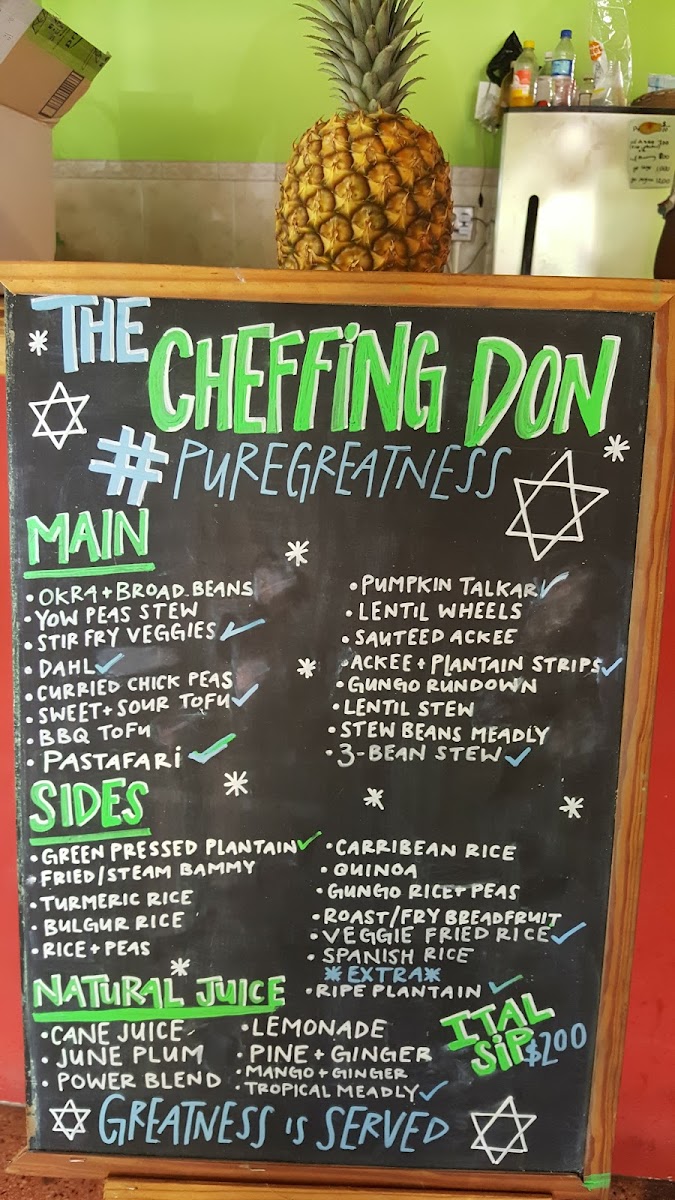 THE
CHEFFING DON
#PUREGREATNESS
MAIN
• OKRA + BROAD BEANS
• YOW PEAS STEW
• STIR FRY VEGGIES ✓
• DAHL ✓
• CURRIED CHICK PEAS
• SWEET + SOUR TOFU ✓
• BBQ TOFU
• PASTAFARI ✓
• PUMPKIN TALKARI ✓
• LENTIL WHEELS
• SAUTEED ACKEE
• ACKEE + PLANTAIN STRIPS ✓
• GUNGO RUNDOWN
• LENTIL STEW
• STEW BEANS MEADLY
• 3-BEAN STEW ✓
SIDES
• GREEN PRESSED PLANTAIN ✓
• FRIED/STEAM BAMMY
• TURMERIC RICE
• BULGUR RICE
• RICE + PEAS
• CARRIBEAN RICE
• QUINOA
• GUNGO RICE + PEAS
• ROAST/FRY BREADFRUIT
• VEGGIE FRIED RICE ✓
• SPANISH RICE
*EXTRA*
• RIPE PLANTAIN ✓
NATURAL JUICE
• CANE JUICE
• JUNE PLUM
• POWER BLEND
• LEMONADE
• PINE + GINGER
• MANGO + GINGER
• TROPICAL MEADLY ✓
ITAL
SIP $200
GREATNESS IS SERVED